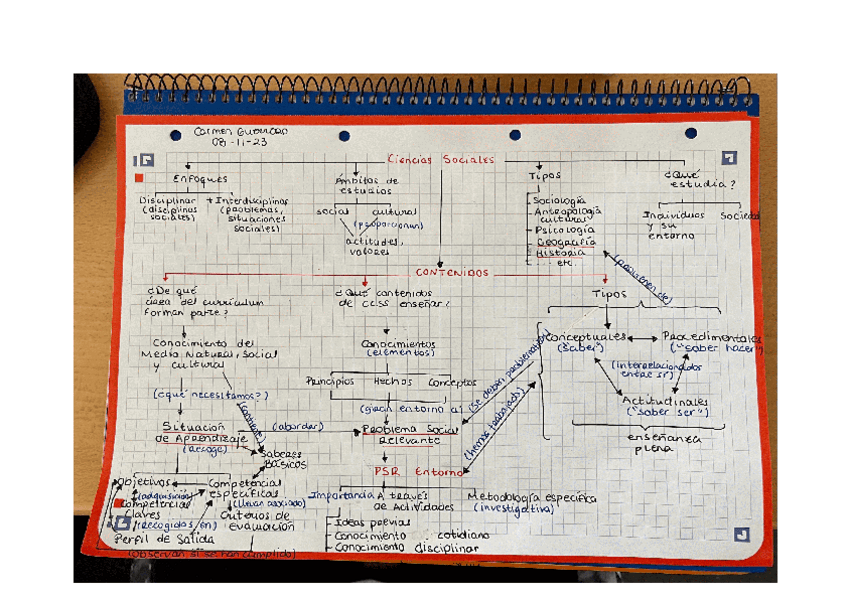 Carmen
08-11-23
Ciencias Sociales
Enfoques
Disciplinar
(disciplinas
sociales)
+ Interdisciplinar
(problemas,
situaciones
sociales)
Ámbitos de
estudios
social
cultural
(proporcionan)
actitudes,
valores
Tipos
Sociología
Antropología
cultural
Psicología
Geografía
Historia
... etc.
¿Qué
estudia?
Individuos
y su
entorno
Sociedad
CONTENIDOS
¿De qué
área del currículum
forman parte?
Conocimiento del
Medio Natural, Social
y Cultural
(¿qué necesitamos?)
(contiene)
Situación
de Aprendizaje
(recoge)
(abordar)
Saberes
Básicos
Objetivos
(adquisición)
Competencias
específicas
(llevan asociado)
Competencias
claves
(recogidos en)
Criterios de
evaluación
Perfil de Salida
(observan si se han cumplido)
¿Qué contenidos
de CCSS enseñar?
Conocimientos
(elementos)
Principios
Hechos
Conceptos
(giran entorno a)
Problema Social
Relevante
PSR Entorno
Importancia
A través
de actividades
Metodología específica
(investigativa)
Ideas previas
Conocimiento cotidiano
Conocimiento disciplinar
(se deban problematizar)
(hemos trabajado)
(provienen de)
Tipos
Conceptuales
("saber")
Procedimentales
("saber hacer")
(interrelacionados
entre sí)
Actitudinales
("saber ser")
enseñanza
plena